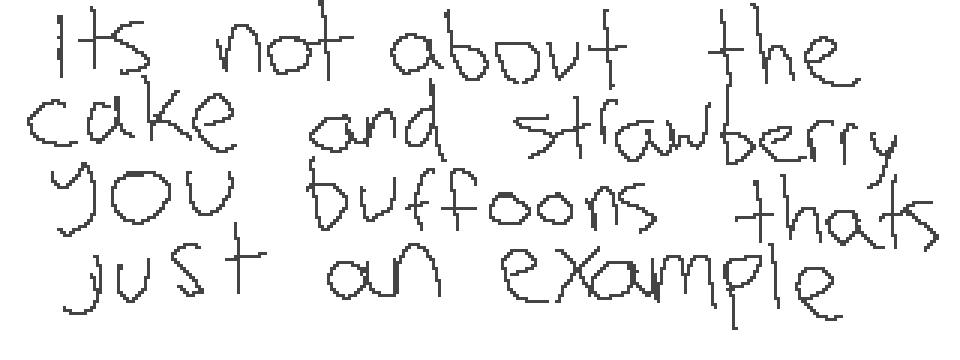 Its not about the
cake and strawberry
you buffoons thats
just an example